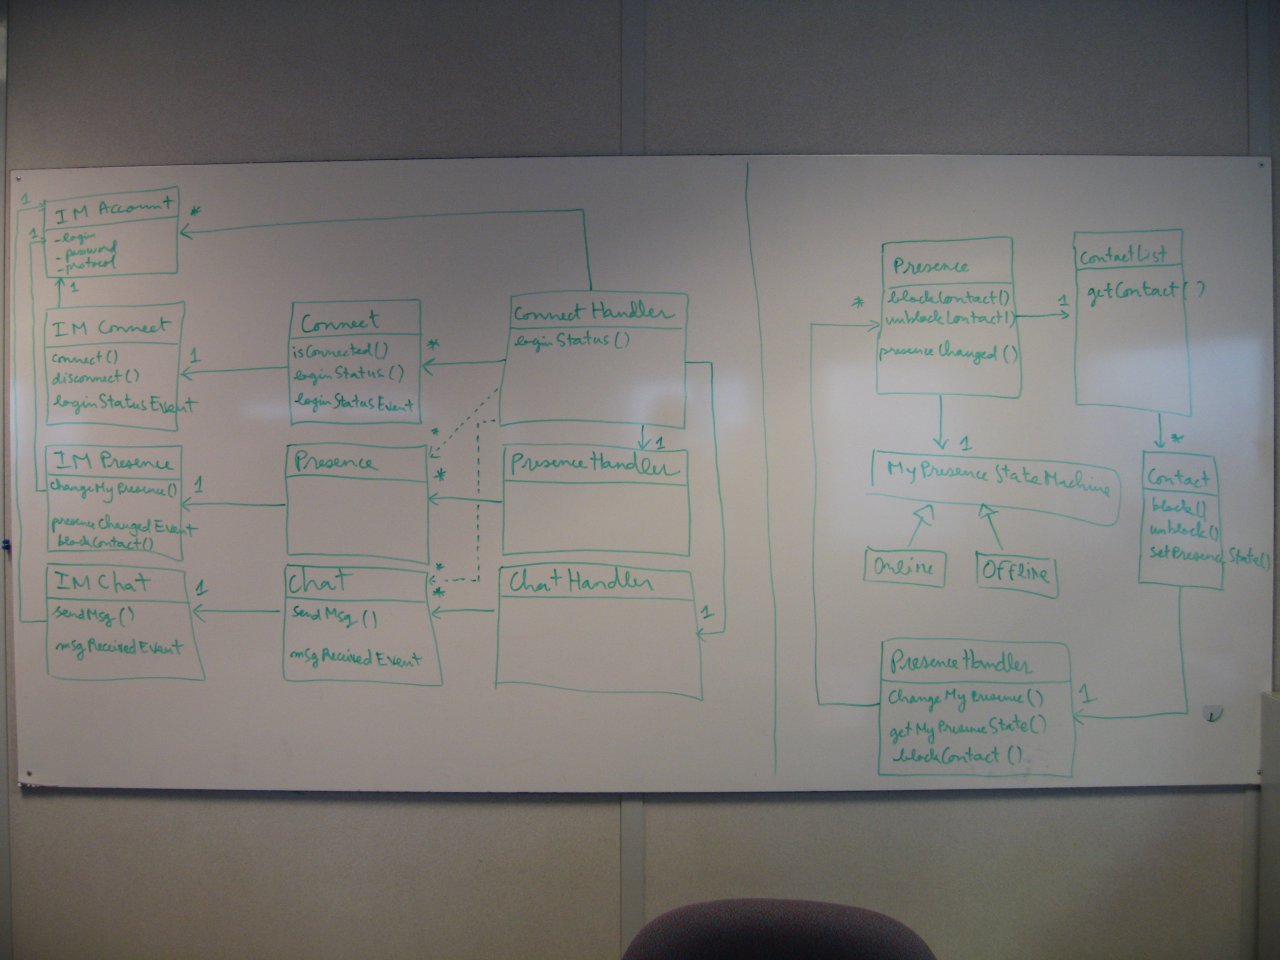 1
IM Account
- login
- password
- protocol
1
1
*
IM Connect
connect()
disconnect()
loginStatusEvent
1
Connect
isConnected()
loginStatus()
loginStatusEvent
*
ConnectHandler
loginStatus()
IM Presence
changeMyPresence()
presenceChangedEvent
blockContact()
1
Presence
*
*
1
PresenceHandler
IM Chat
sendMsg()
msgReceivedEvent
1
Chat
sendMsg()
msgReceivedEvent
*
*
ChatHandler
1
Presence
blockContact()
unblockContact()
presenceChanged()
*
1
ContactList
getContact()
1
*
MyPresenceStateMachine
Online
Offline
Contact
block()
unblock()
setPresenceState()
PresenceHandler
changeMyPresence()
getMyPresenceState()
blockContact()
1